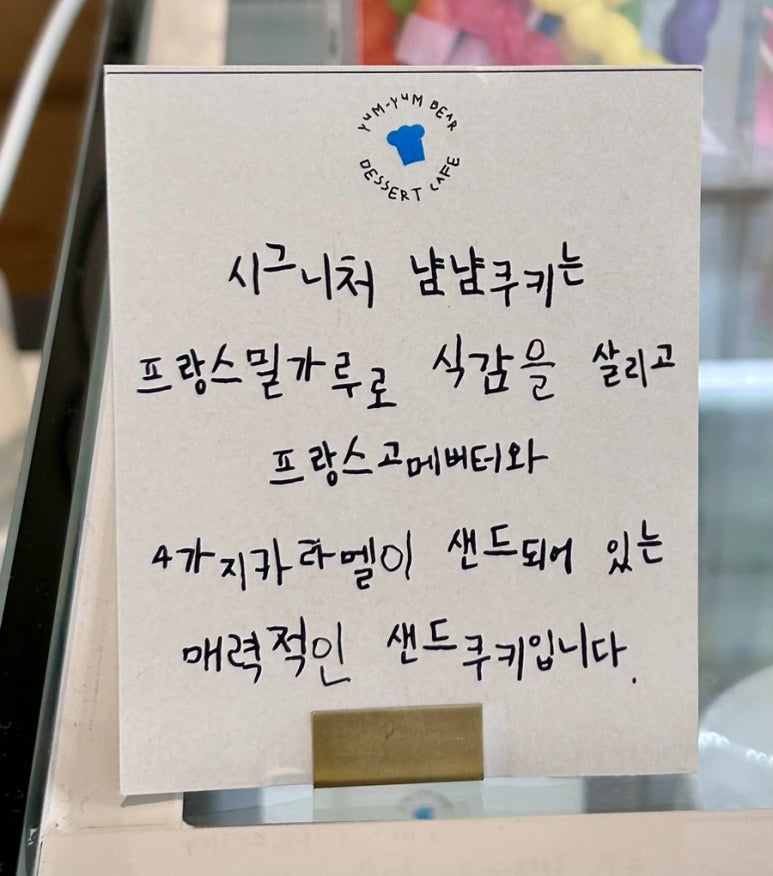 YUM-YUM BEAR
DESSERT CAFE
시그니처 냠냠쿠키는
프랑스밀가루로 식감을 살리고
프랑스고메버터와
4가지카라멜이 샌드되어 있는
매력적인 샌드쿠키입니다.